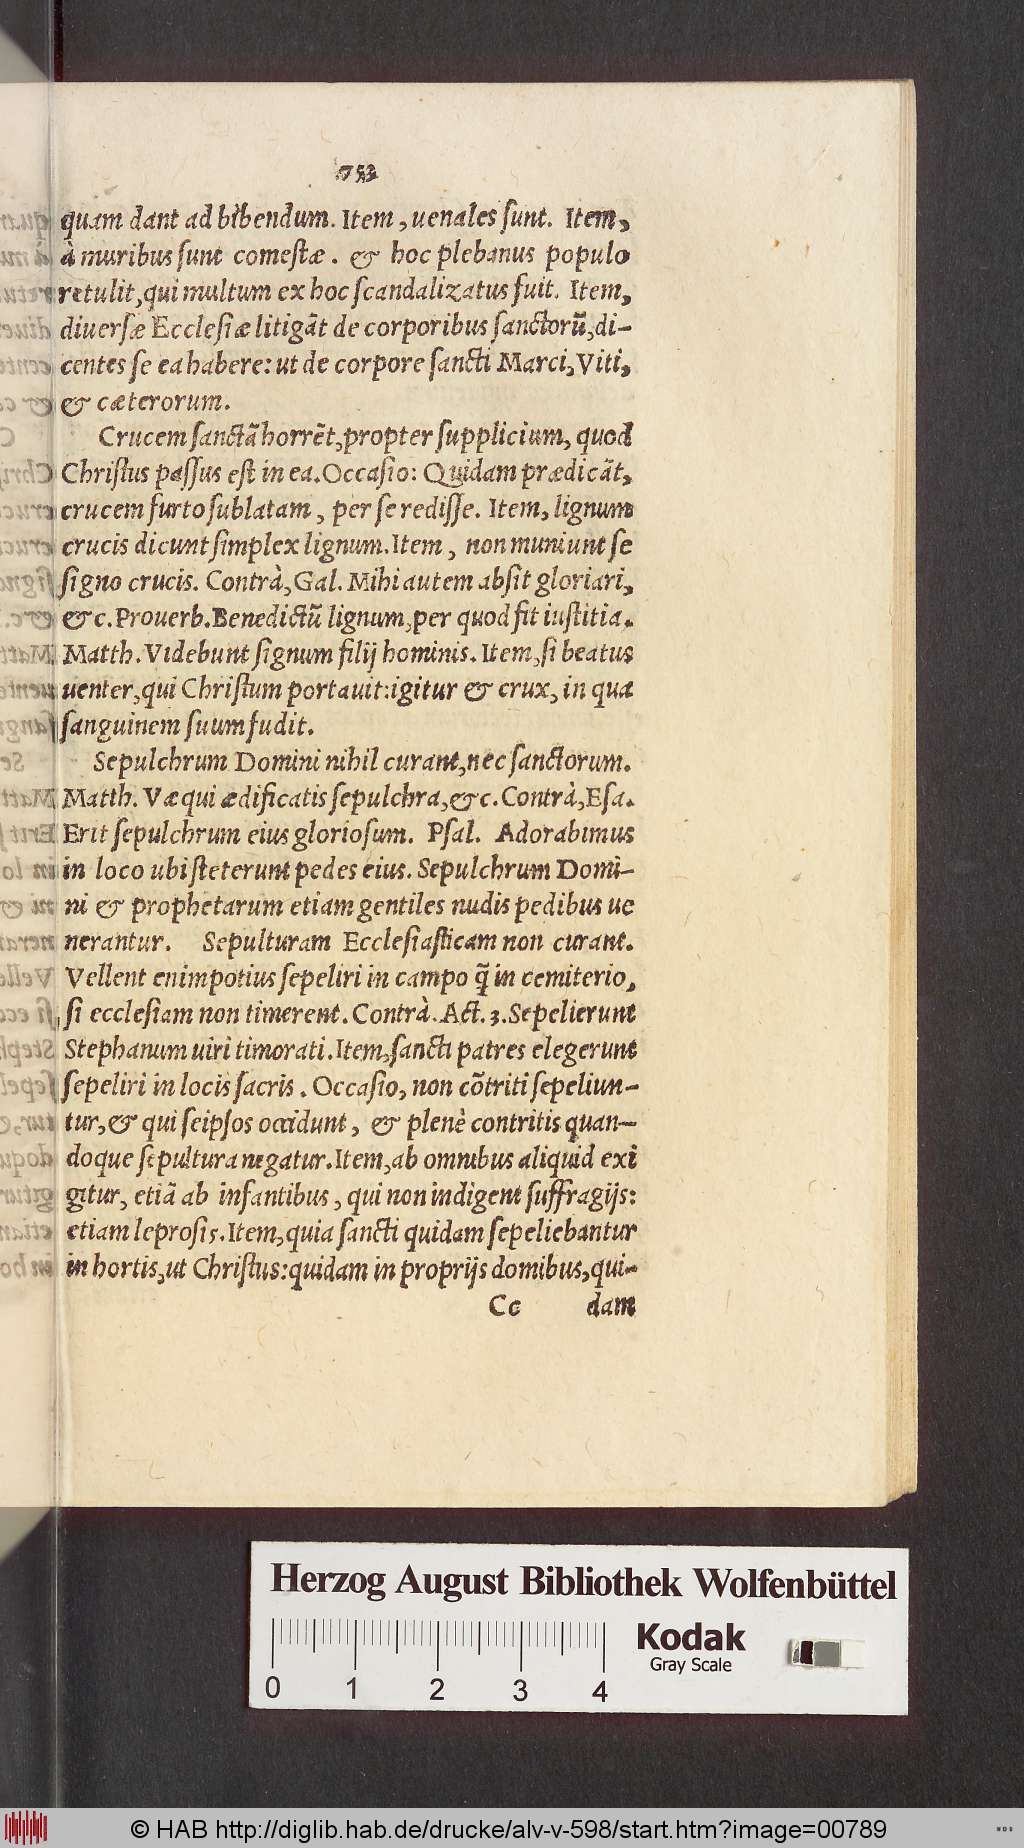 753
quam dant ad bibendum. Item, uenales sunt. Item,
à muribus sunt comestæ. & hoc plebanus populo
retulit, qui multum ex hoc scandalizatus fuit. Item,
diuersæ Ecclesiæ litigãt de corporibus sanctorũ, di-
centes se ea habere: ut de corpore sancti Marci, Viti,
& cæterorum.
Crucem sanctã horrẽt, propter supplicium, quod
Christus passus est in ea. Occasio: Quidam prædicãt,
crucem furto sublatam, per se redisse. Item, lignum
crucis dicunt simplex lignum. Item, non muniunt se
signo crucis. Contrà, Gal. Mihi autem absit gloriari,
&c. Prouerb. Benedictũ lignum, per quod fit iustitia.
Matth. Videbunt signum filij hominis. Item, si beatus
uenter, qui Christum portauit: igitur & crux, in qua
sanguinem suum fudit.
Sepulchrum Domini nihil curant, nec sanctorum.
Matth. Væ qui ædificatis sepulchra, &c. Contrà, Esa.
Erit sepulchrum eius gloriosum. Psal. Adorabimus
in loco ubi steterunt pedes eius. Sepulchrum Domi-
ni & prophetarum etiam gentiles nudis pedibus ue
nerantur. Sepulturam Ecclesiasticam non curant.
Vellent enim potius sepeliri in campo q̃ in cemiterio,
si ecclesiam non timerent. Contrà. Act. 3. Sepelierunt
Stephanum uiri timorati. Item, sancti patres elegerunt
sepeliri in locis sacris. Occasio, non cõtriti sepeliun-
tur, & qui seipsos occidunt, & plenè contritis quan-
doque sepultura negatur. Item, ab omnibus aliquid exi
gitur, etiã ab infantibus, qui non indigent suffragijs:
etiam leprosis. Item, quia sancti quidam sepeliebantur
in hortis, ut Christus: quidam in proprijs domibus, qui-
Cc dam
Herzog August Bibliothek Wolfenbüttel
Kodak
Gray Scale
0 1 2 3 4
© HAB http://diglib.hab.de/drucke/alv-v-598/start.htm?image=00789